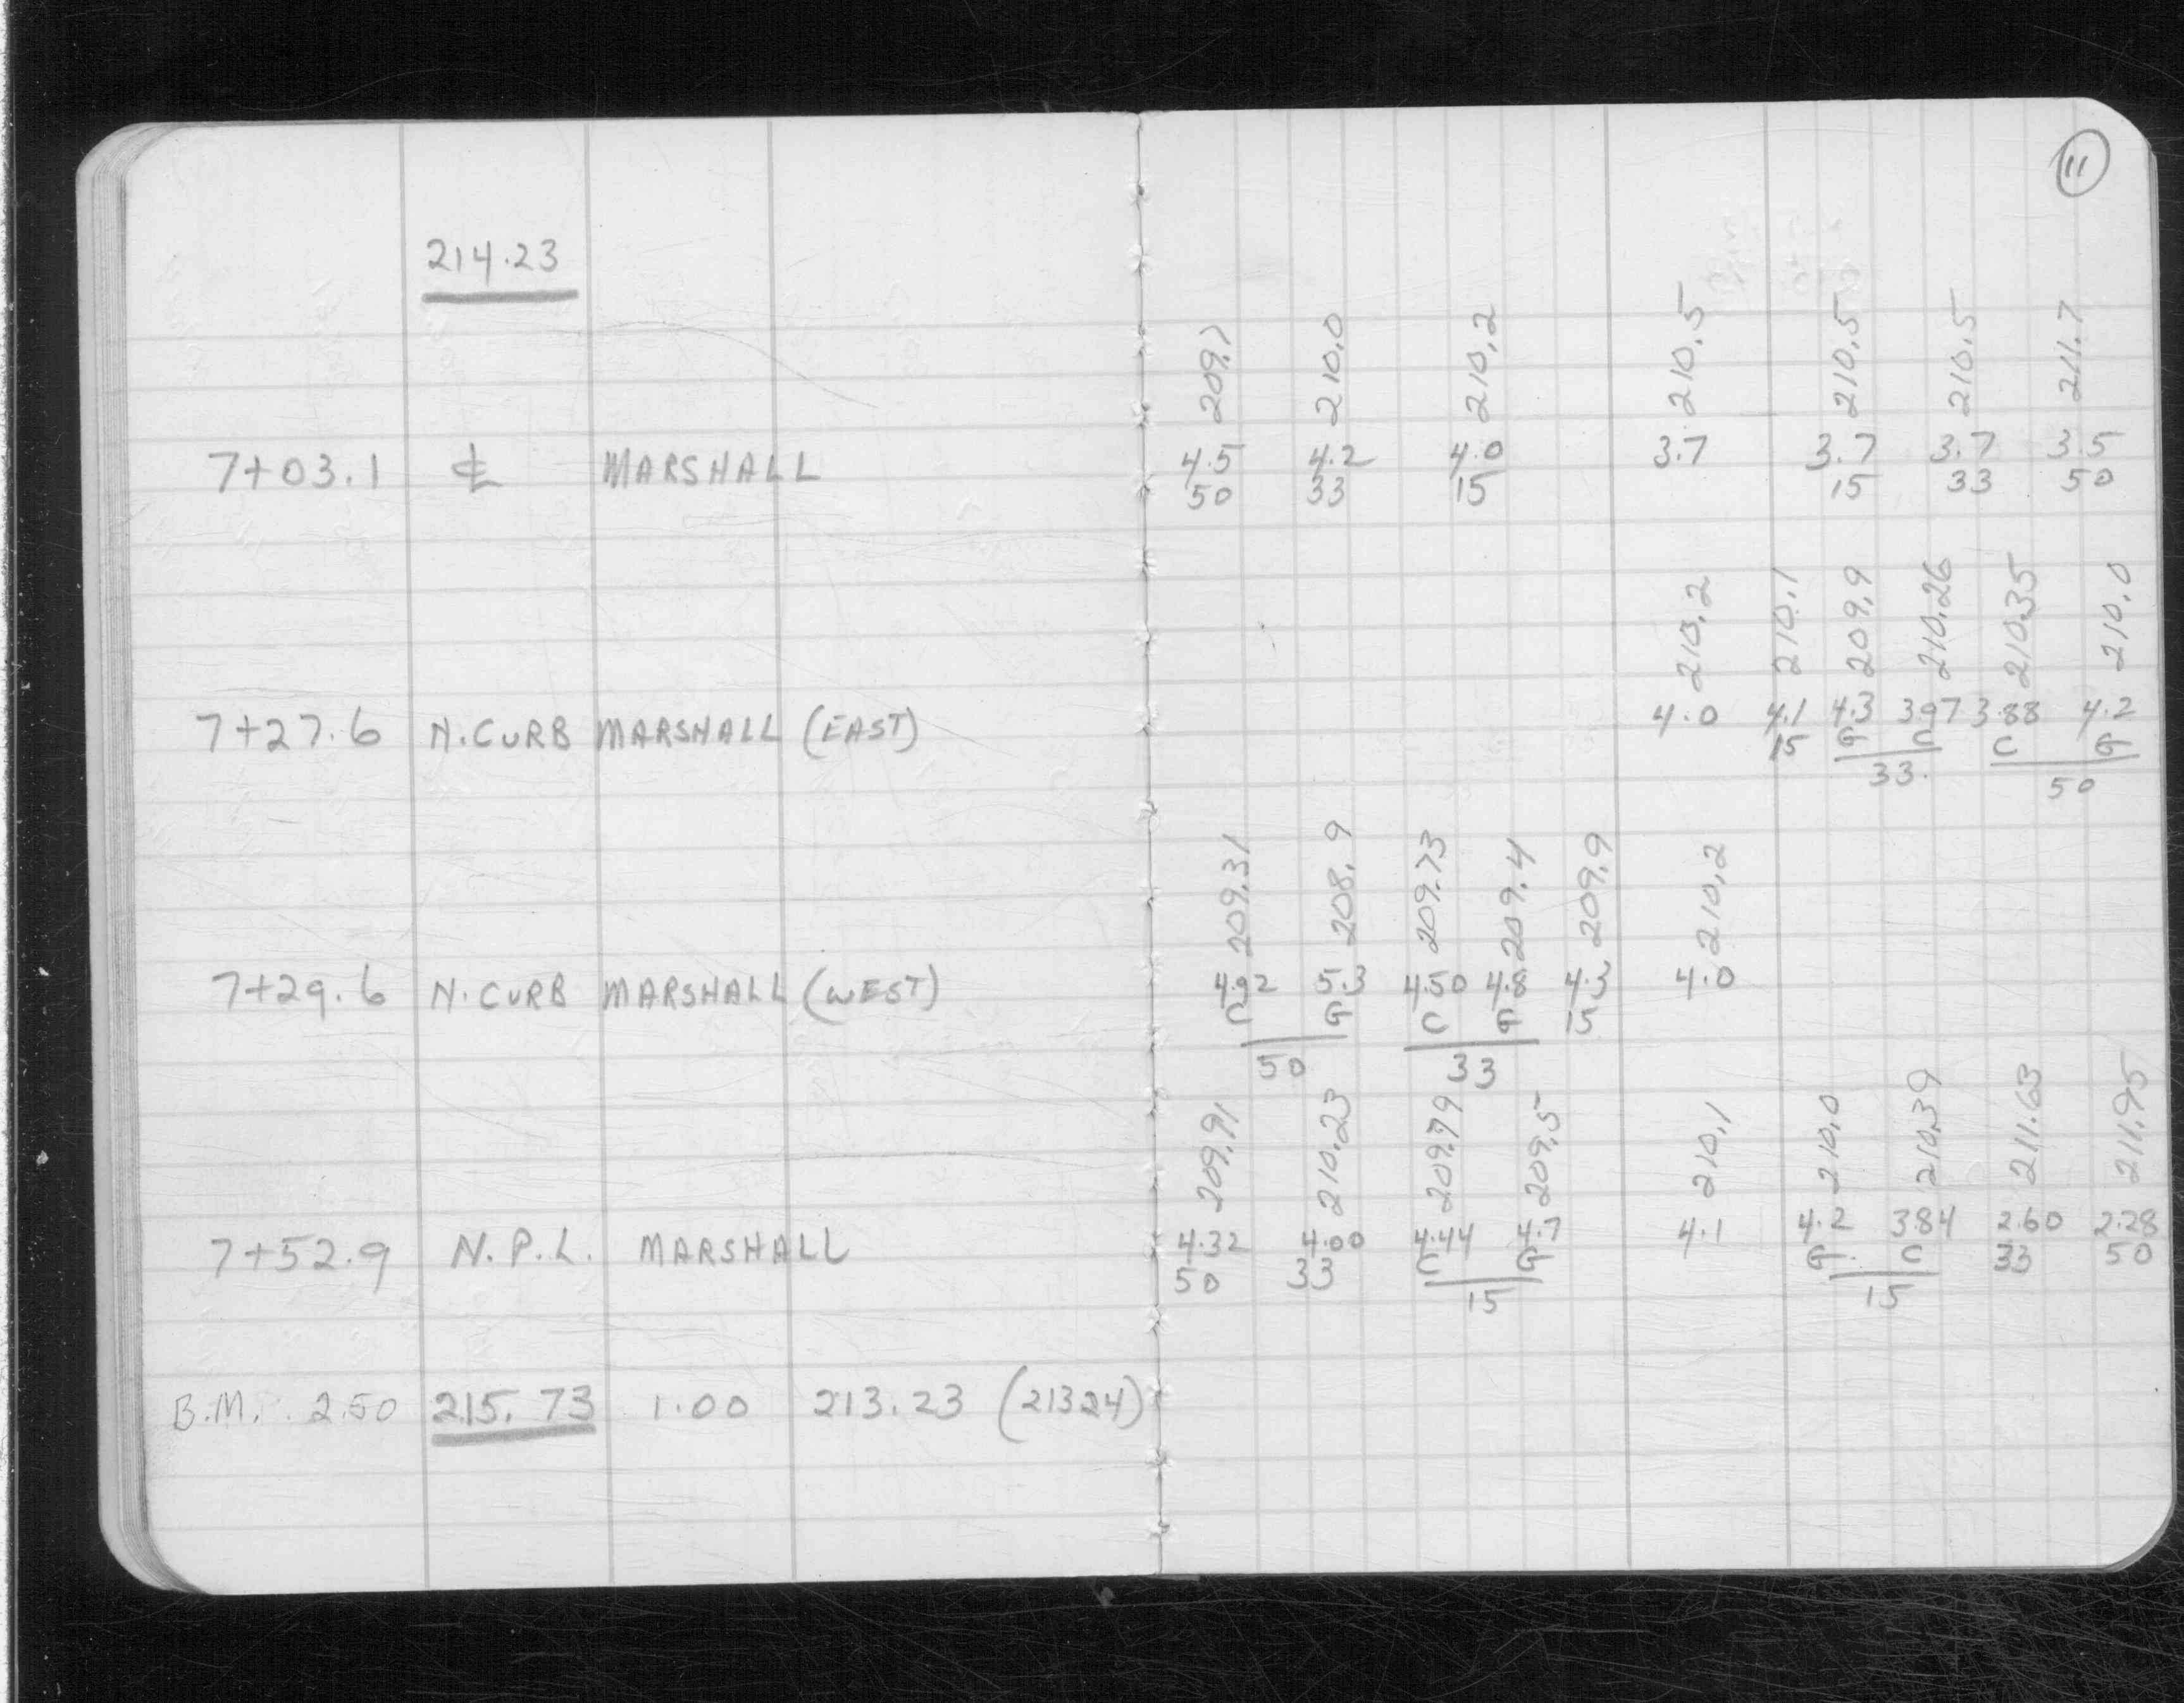 11
214.23
209.7 210.0 210.2 210.5 210.5 210.5 211.7
7+03.1 ℄ MARSHALL 4.5 4.2 4.0 3.7 3.7 3.7 3.5
50 33 15 15 33 50
210.2 210.1 209.9 210.26 210.35 210.0
7+27.6 N.CURB MARSHALL (EAST) 4.0 4.1 4.3 3.97 3.88 4.2
15 G C C G
33
50
209.31 208.9 209.73 209.4 209.9 210.2
7+29.6 N.CURB MARSHALL (WEST) 4.92 5.3 4.50 4.8 4.3 4.0
C G C G 15
50 33
209.91 210.23 209.79 209.5 210.1 210.0 210.39 211.63 211.95
7+52.9 N.P.L. MARSHALL 4.32 4.00 4.44 4.7 4.1 4.2 3.84 2.60 2.28
50 33 C G G C 33 50
15 15
B.M. 2.50 215.73 1.00 213.23 (213.24)